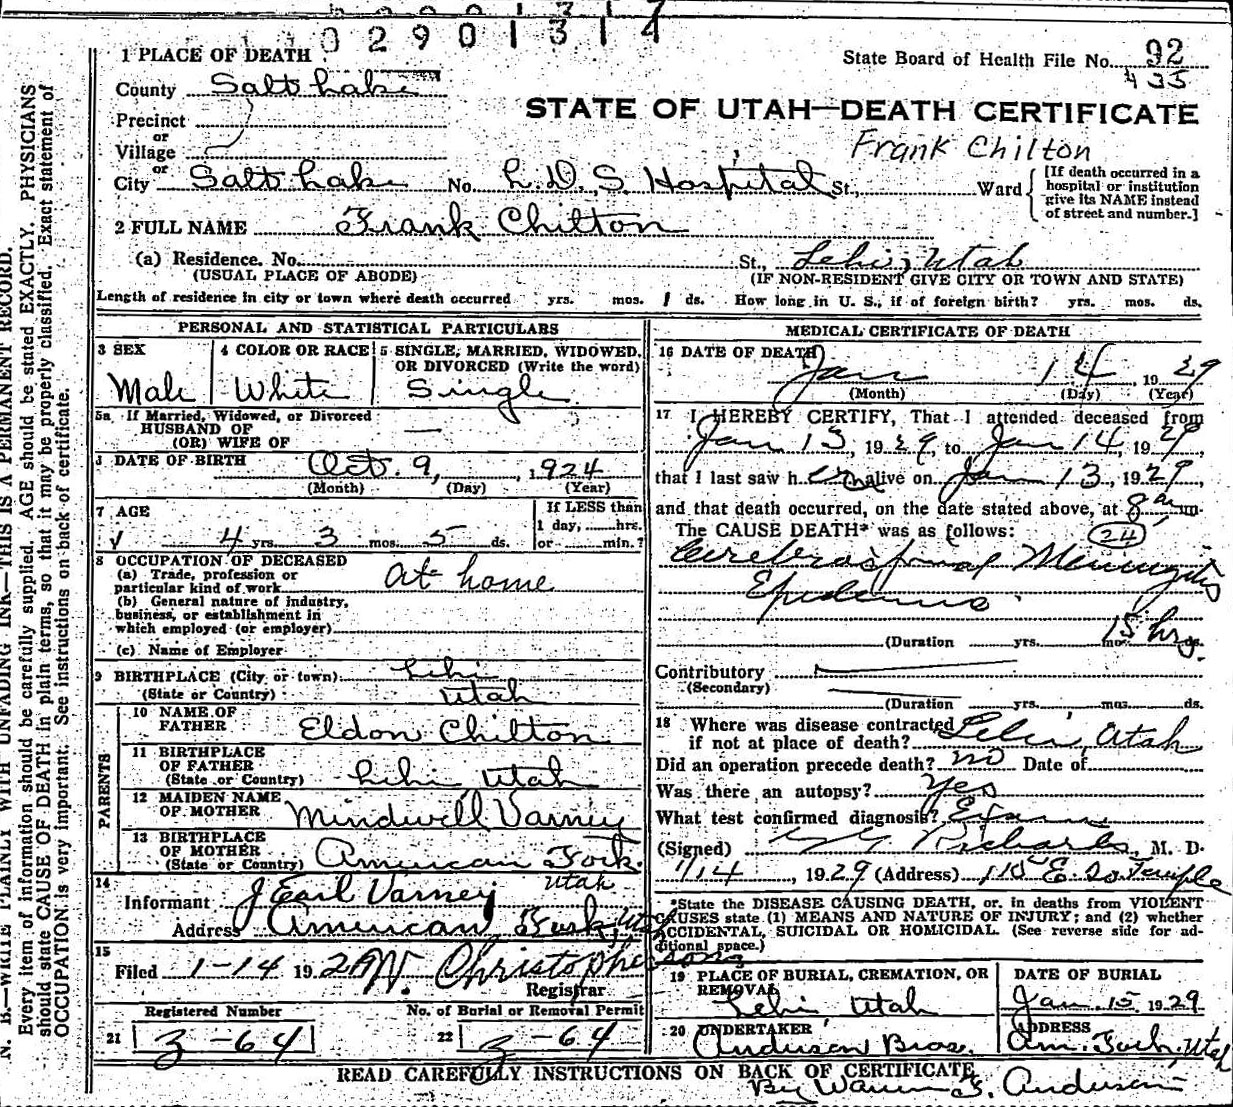 0 2 9 0 1 3 1 4
State Board of Health File No. 92
435
STATE OF UTAH—DEATH CERTIFICATE
Frank Chilton
1 PLACE OF DEATH
County Salt Lake
Precinct
or
Village
or
City Salt Lake No. L. D. S. Hospital St., Ward
[If death occurred in a hospital or institution give its NAME instead of street and number.]
2 FULL NAME Frank Chilton
(a) Residence. No. St., Lehi, Utah
(USUAL PLACE OF ABODE) (IF NON-RESIDENT GIVE CITY OR TOWN AND STATE)
Length of residence in city or town where death occurred yrs. mos. 1 ds. How long in U. S., if of foreign birth? yrs. mos. ds.
PERSONAL AND STATISTICAL PARTICULARS
3 SEX
Male
4 COLOR OR RACE
White
5 SINGLE, MARRIED, WIDOWED,
OR DIVORCED (Write the word)
Single
5a If Married, Widowed, or Divorced
HUSBAND OF
(OR) WIFE OF —
DATE OF BIRTH Oct. 9, 1924
(Month) (Day) (Year)
7 AGE
4 yrs. 3 mos. 5 ds.
If LESS than
1 day, hrs.
or min.?
8 OCCUPATION OF DECEASED
(a) Trade, profession or
particular kind of work At home
(b) General nature of industry,
business, or establishment in
which employed (or employer)
(c) Name of Employer
9 BIRTHPLACE (City or town) Lehi
(State or Country) Utah
PARENTS
10 NAME OF
FATHER Eldon Chilton
11 BIRTHPLACE
OF FATHER
(State or Country) Lehi, Utah
12 MAIDEN NAME
OF MOTHER Mindwell Varney
13 BIRTHPLACE
OF MOTHER
(State or Country) American Fork.
Utah
14
Informant J Earl Varney
Address American Fork, Ut
15
Filed 1-14 1929 W. Christopherson
Registrar
Registered Number
21 3-64
No. of Burial or Removal Permit
22 3-64
MEDICAL CERTIFICATE OF DEATH
16 DATE OF DEATH
Jan 14, 1929
(Month) (Day) (Year)
17 I HEREBY CERTIFY, That I attended deceased from
Jan 13, 1929, to Jan 14, 1929
that I last saw him alive on Jan 13, 1929,
and that death occurred, on the date stated above, at 8 am.
The CAUSE DEATH* was as follows: 24
Cerebrospinal Meningitis
Epidemic
(Duration yrs. mos. 15 hrs.
Contributory
(Secondary)
(Duration yrs. mos. ds.
18 Where was disease contracted
if not at place of death? Lehi, Utah
Did an operation precede death? no Date of
Was there an autopsy? Yes
What test confirmed diagnosis? Exam
(Signed) Richards, M. D.
1/14, 1929 (Address) 115 E. So. Temple
*State the DISEASE CAUSING DEATH, or, in deaths from VIOLENT
CAUSES state (1) MEANS AND NATURE OF INJURY; and (2) whether
ACCIDENTAL, SUICIDAL OR HOMICIDAL. (See reverse side for ad-
ditional space.)
19 PLACE OF BURIAL, CREMATION, OR
REMOVAL
Lehi, Utah
DATE OF BURIAL
Jan. 15, 1929
20 UNDERTAKER
Anderson Bros.
ADDRESS
Am. Fork, Utah
READ CAREFULLY INSTRUCTIONS ON BACK OF CERTIFICATE
By Warren F. Anderson
N. B.—WRITE PLAINLY WITH UNFADING INK—THIS IS A PERMANENT RECORD.
Every item of information should be carefully supplied. AGE should be stated EXACTLY. PHYSICIANS
should state CAUSE OF DEATH in plain terms, so that it may be properly classified. Exact statement of
OCCUPATION is very important. See instructions on back of certificate.